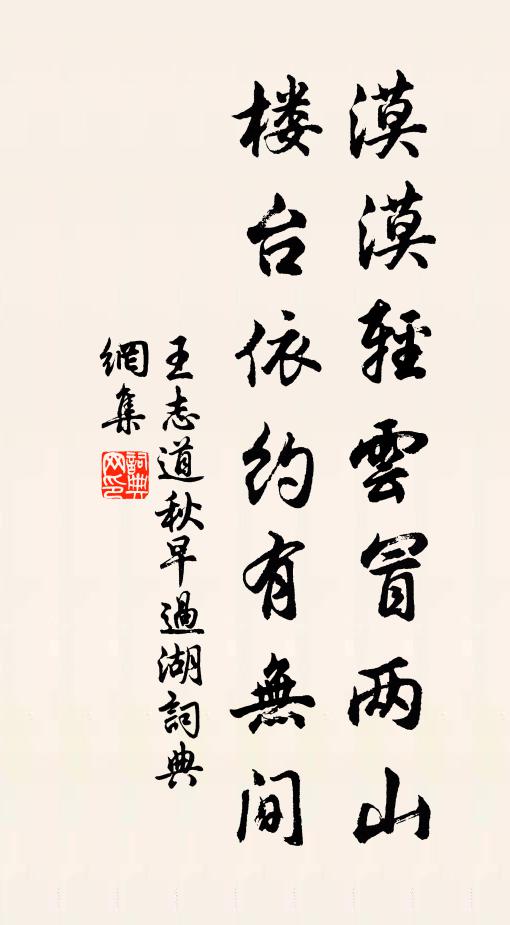 漠漠輕雲冒两山
楼台依約有無间
王志道秋早過湖詞典
網集
詞典
网印